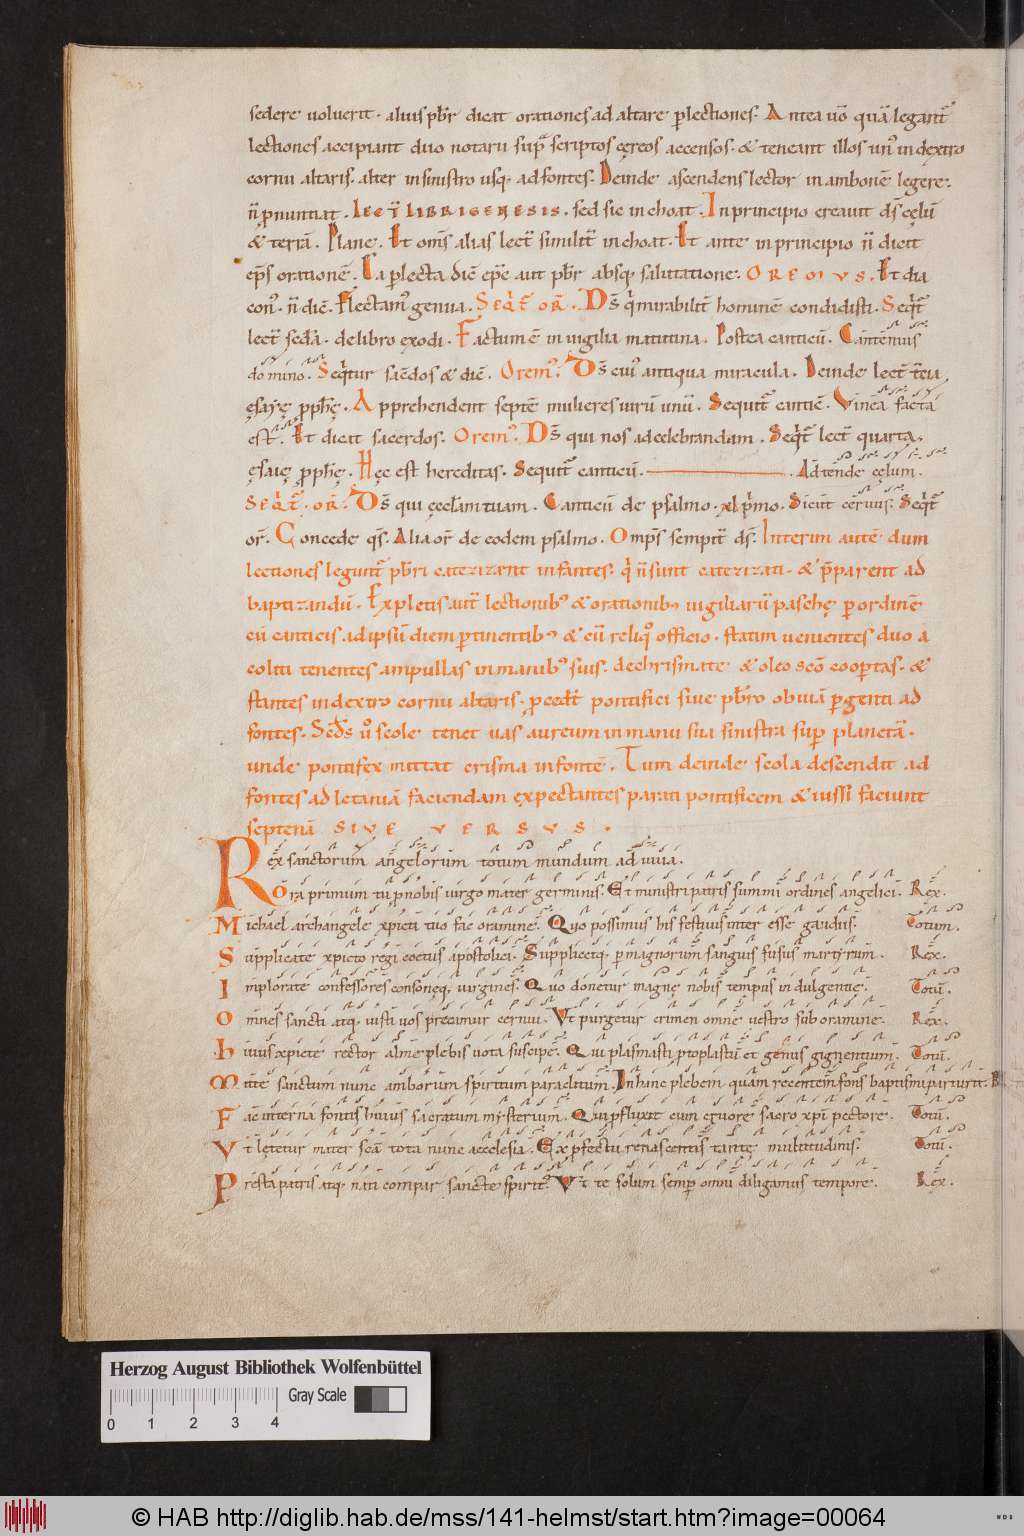 sedere uoluerit. alius pbr̄ dicat orationes ad altare p̱ lectiones. Antea uō quā legant᷑
lectiones accipiant duo notarii sup᷑ scriptos cęreos accensos. & teneant illos un᷒ in dextro
cornu altaris. alter in sinistro usq; ad fontes. Deinde ascendens lector in ambonē legere.
n̄ p̱nuntiat. LECT̄ LIBRI GENESIS. sed sic inchoat. In principio creauit dś cęlū
& terrā. Plane. Et om̄s alias lect̄ similit̄ inchoat. Et ante in principio n̄ dicit
ep̄s orationē. Ea p̱lecta dic̄ ep̄c aut pbr̄ absq; salutatione. OREMVS. Et dia
con᷒. n̄ dic̄. Flectam᷒ genua. Seqt᷑ or̄. Dś qui mirabilit̄ hominē condidisti. Seqt᷑
lect̄ scd̄a. de libro exodi. Factum ē in uigilia matutina. Postea canticū. Cantemus
domino. Sequitur sac̄dos & dic̄. Orem᷒. Dś cui᷒ antiqua miracula. Deinde lect̄ t̄cia
ęsaię pp̄hę. Apprehendent septē mulieres uirū unū. Sequit᷑ cantic̄. Vinea facta
est. Et dicit sacerdos. Orem᷒. Dś qui nos ad celebrandam. Seqt᷑ lect̄ quarta
ęsaię pp̄hę. Hęc est hereditas. Sequit᷑ canticū. Adtende cęlum.
Seqt᷑. or̄. Dś qui ęccl̄am tuam. Canticū de psalmo. xl primo. Sicut ceruus. Seqt᷑
or̄. Concede qs̄. Alia or̄ de eodem psalmo. Omp̄s sempit̄ dś. Interim autē dum
lectiones legunt᷑ pbr̄i catezizant infantes. qi n̄ sunt catezizati. & p̄parent ad
baptizandū. Expletis aut̄ lectionib᷒ & orationib᷒ uigiliarū paschę p̱ ordinē
cū canticis ad ipsū diem p̱tinentib᷒ & cū reliq᷒ officio. statim uenientes duo a
coliti tenentes ampullas in manib᷒ suis. de chrismate & oleo scō coop̱tas. &
stantes in dextro cornu altaris. p̱cedt̄ pontifici siue pbr̄o obuiā p̱genti ad
fontes. Scd̄s u᷒o scole tenet uas aureum in manu sua sinistra sup̱ planetā.
unde pontifex mittat crisma in fontē. Tum deinde scola descendit ad
fontes ad letaniā faciendam expectantes parati pontificem & iussi faciunt
septenā SIVE VERSVS.
Rex sanctorum angelorum totum mundum adiuua.
Ora primum tu p̱ nobis uirgo mater germinis. Et ministri patris summi ordines angelici. Rex.
Michael archangele xpicti tuo fac oramine. Quo possimus his festiuis inter esse gaudiis. Totum.
Supplicate xpicto regi coetus apostolici. Supplicetq; p̱ magnorum sanguis fusus martyrum. Rex.
Implorate confessores consonęq; uirgines. Quo donetur magnę nobis tempus indulgentię. Totū.
Omnes sancti atq; iusti uos precamur cernui. Vt purgetur crimen omne uestro sub oramine. Rex.
Huius xpicte rector alme plebis uota suscipe. Qui plasmasti ptoplastū et genus gignentium. Totū.
Mitte sanctum nunc amborum spiritum paraclitum. In hanc plebem quam recentem fons baptismi parturit. R
Fac interna fontis huius sacratum mysterium. Qui p̱fluxit cum cruore sacro xpi pectore. Totū.
Vt lętetur mater scā tota nunc aecclesia. Ex p̱fectu renascentis tantę multitudinis. Totū.
Presta patris atq; nati compar sancte spirit᷒. Vt te solum semp̱ omni diligamus tempore. Rex.
Herzog August Bibliothek Wolfenbüttel
Gray Scale
0 1 2 3 4
© HAB http://diglib.hab.de/mss/141-helmst/start.htm?image=00064